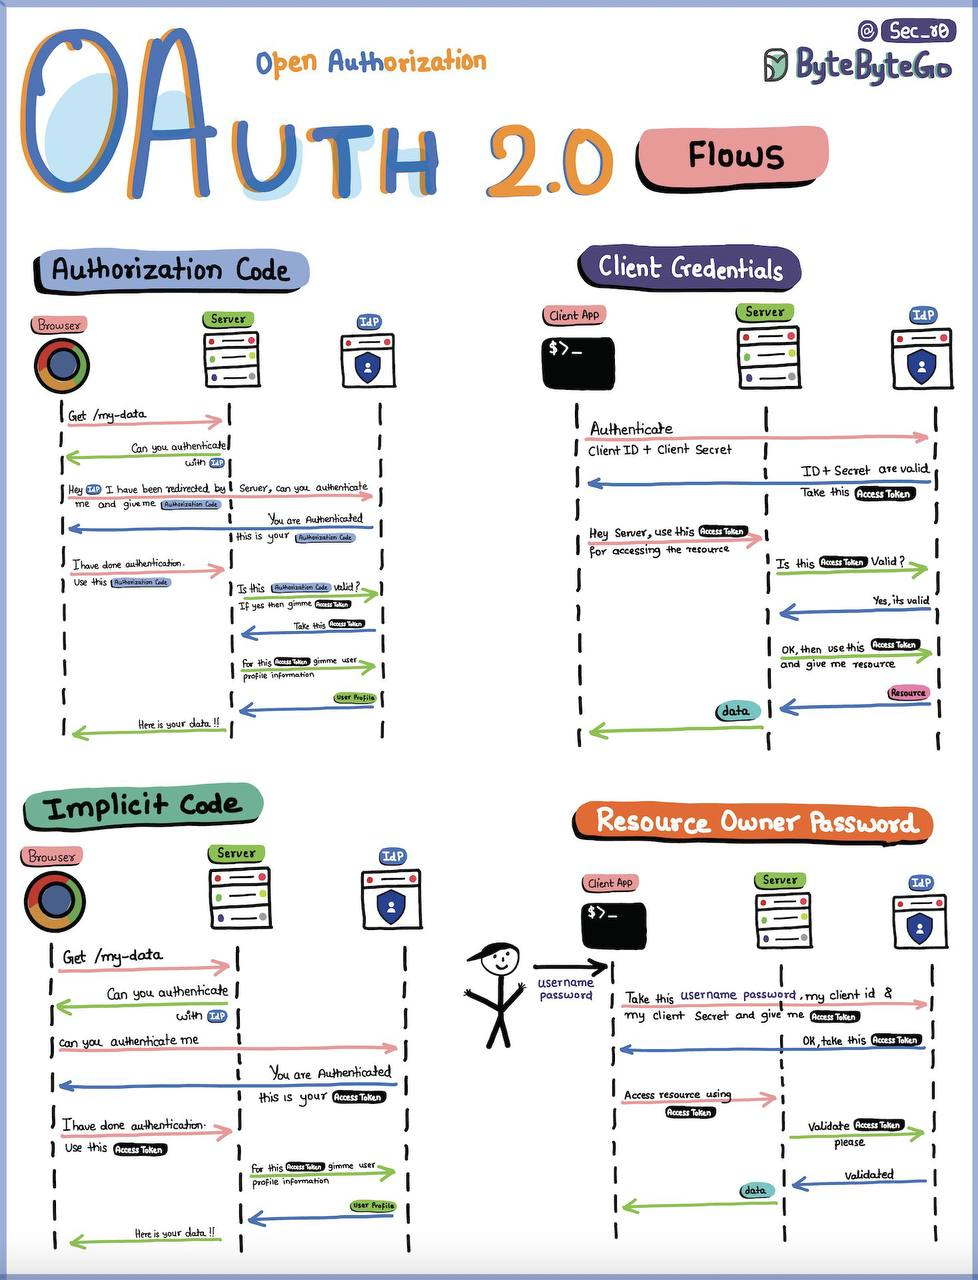 @ Sec_r0
Open Authorization
ByteByteGo
OAUTH 2.0 Flows
Authorization Code
Browser
Server
IdP
Get /my-data
Can you authenticate
with IdP
Hey IdP I have been redirected by Server, can you authenticate
me and give me Authorization Code
You are Authenticated
this is your Authorization Code
I have done authentication.
Use this Authorization Code
Is this Authorization Code valid?
If yes then gimme Access Token
Take this Access Token
For this Access Token gimme user
profile information
User Profile
Here is your data !!
Client Credentials
Client App
Server
IdP
$>_
Authenticate
Client ID + Client Secret
ID + Secret are valid
Take this Access Token
Hey Server, use this Access Token
for accessing the resource
Is this Access Token Valid?
Yes, its valid
OK, then use this Access Token
and give me resource
Resource
data
Implicit Code
Browser
Server
IdP
Get /my-data
Can you authenticate
with IdP
can you authenticate me
You are Authenticated
this is your Access Token
I have done authentication.
Use this Access Token
For this Access Token gimme user
profile information
User Profile
Here is your data !!
Resource Owner Password
Client App
Server
IdP
$>_
username
password
Take this username password, my client id &
my client Secret and give me Access Token
OK, take this Access Token
Access resource using
Access Token
Validate Access Token
please
Validated
data